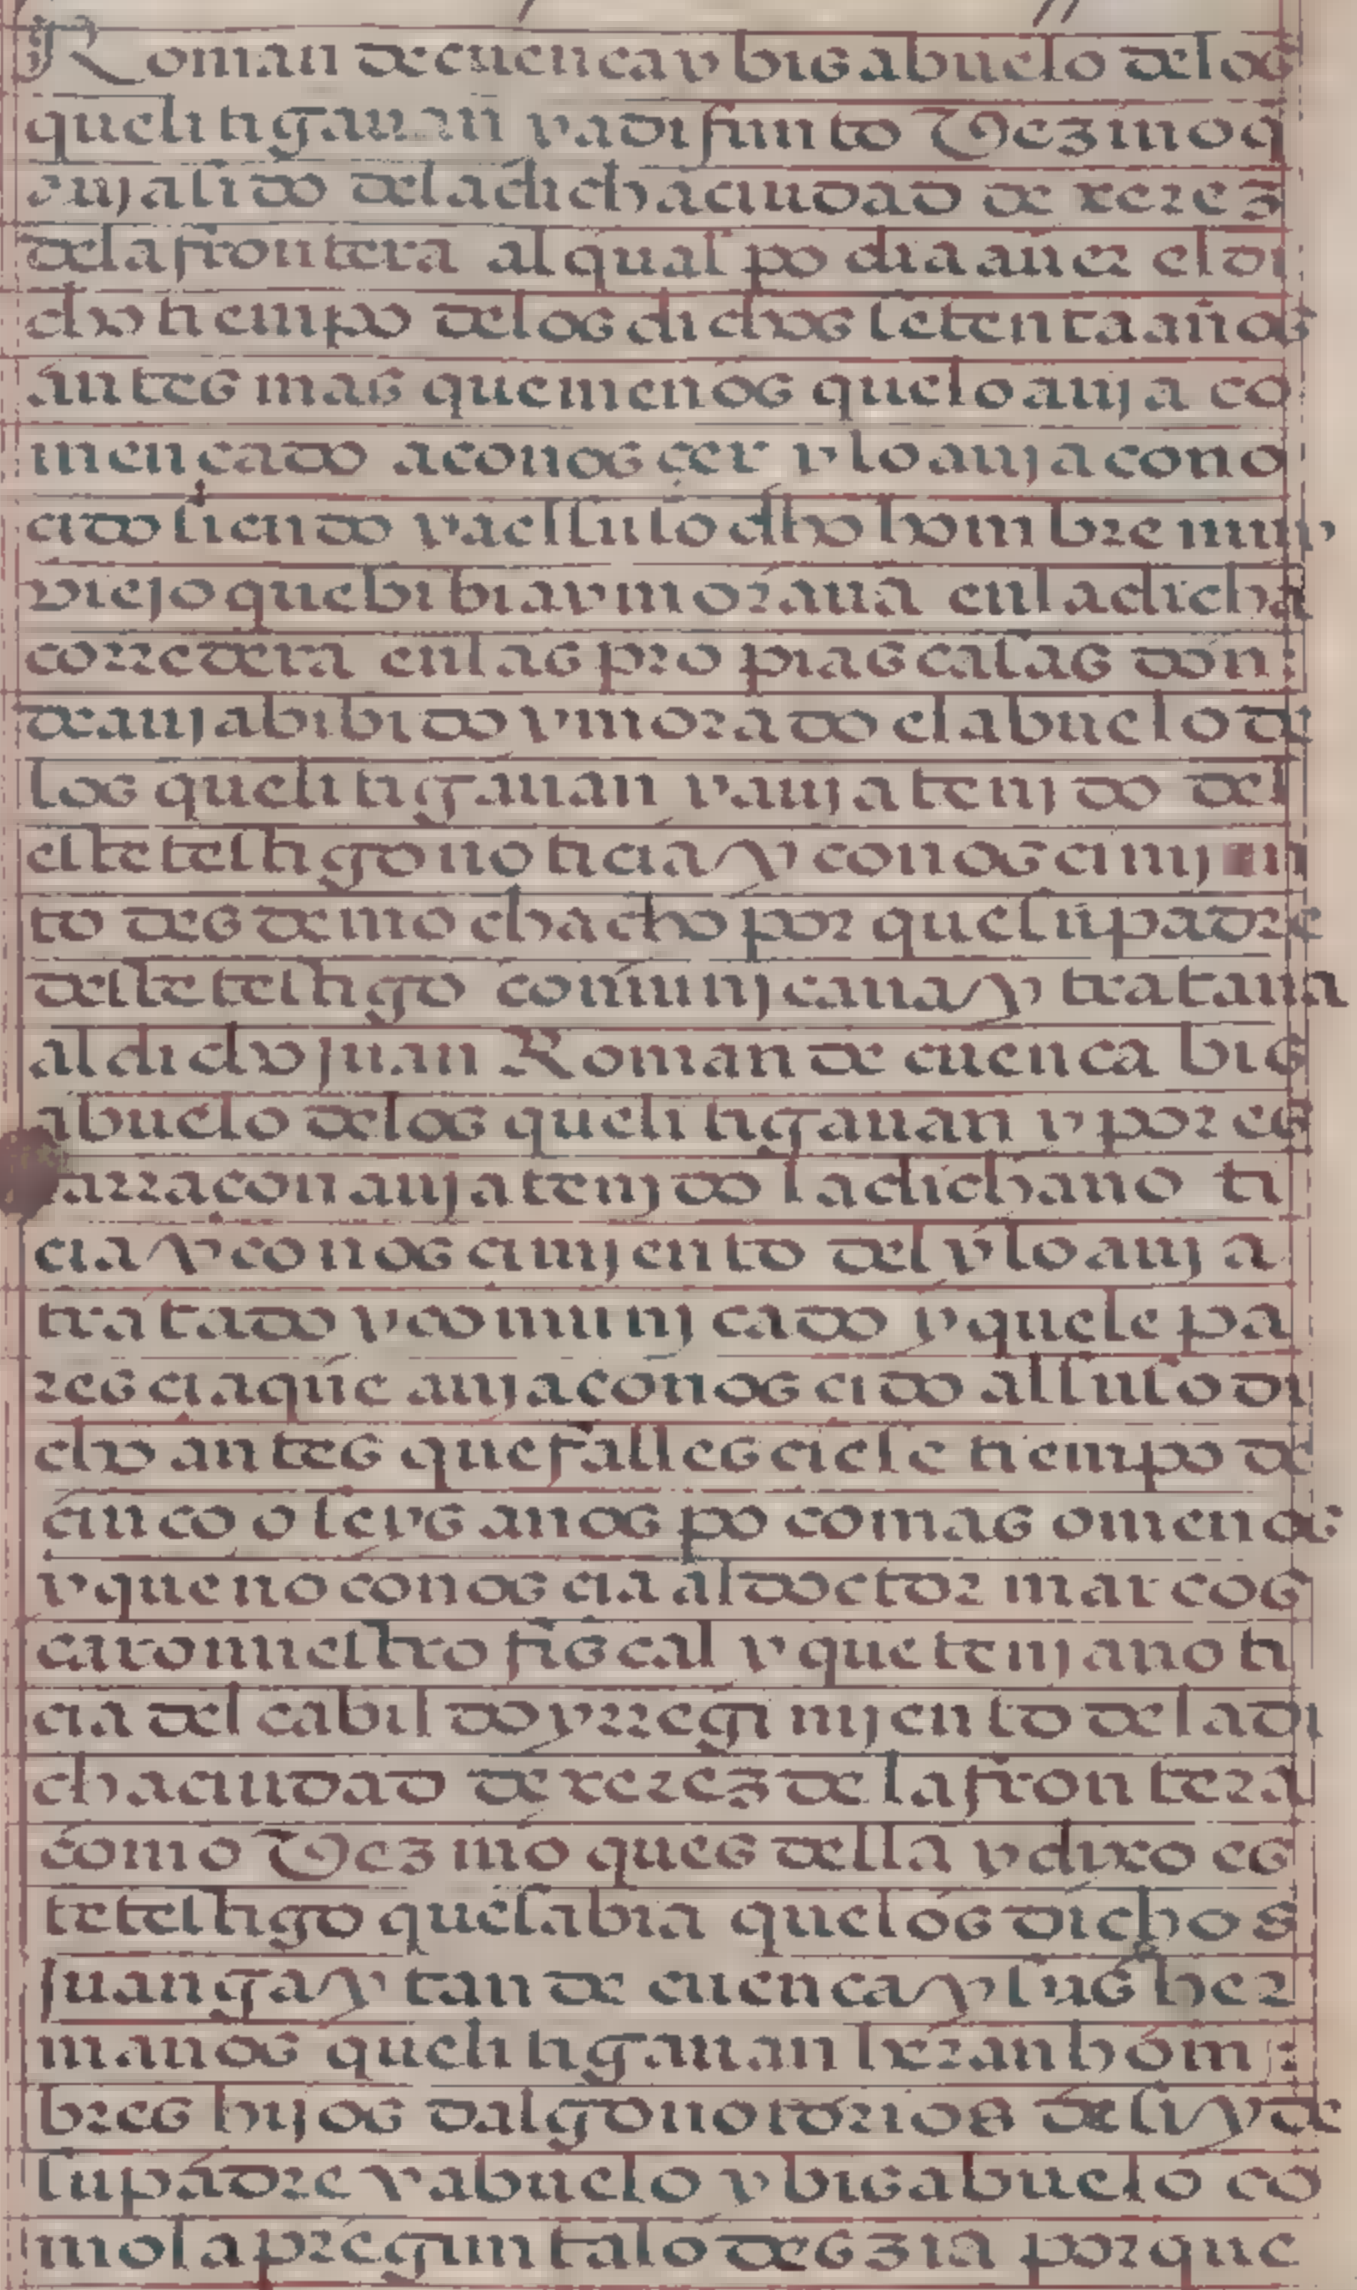 Roman de cuenca y bisabuelo de los
que litigauan ya difunto Vezino q
auja sido de la dicha ciudad de xerez
de la frontera al qual podia auer el di
cho tiempo de los dichos setenta años
antes mas que menos que lo auja co
mençado a conosçer y lo auja cono
cido siendo ya el suso dho hombre muy
viejo que bibia y moraua en la dicha
corredera en las propias casas don
de auja bibido y morado el abuelo de
los que litigauan y auja tenjdo del
este testigo noticia y conoscimjen
to desde mochacho por que su padre
deste testigo comunjcaua y trataua
al dicho juan Roman de cuenca bis
abuelo de los que litigauan y por es
ta rraçon auja tenjdo la dicha noti
cia y conoscimjento del y lo auja
tratado y comunjcado y que le pa
rescia que auja conoscido al suso di
cho antes que fallesciese tiempo de
cinco o seys anos poco mas o menos
y que no conoscia al doctor marcos
caro nuestro fiscal y que tenja noti
cia del cabildo y rregimjento de la di
cha ciudad de xerez de la frontera
como Vezino ques della y dixo es
te testigo que sabia que los dichos
juan gaytan de cuenca y sus her
manos que litigauan heran hom
bres hijos dalgo notorios de si y de
su padre y abuelo y bisabuelo co
mo la pregunta lo deszia porque